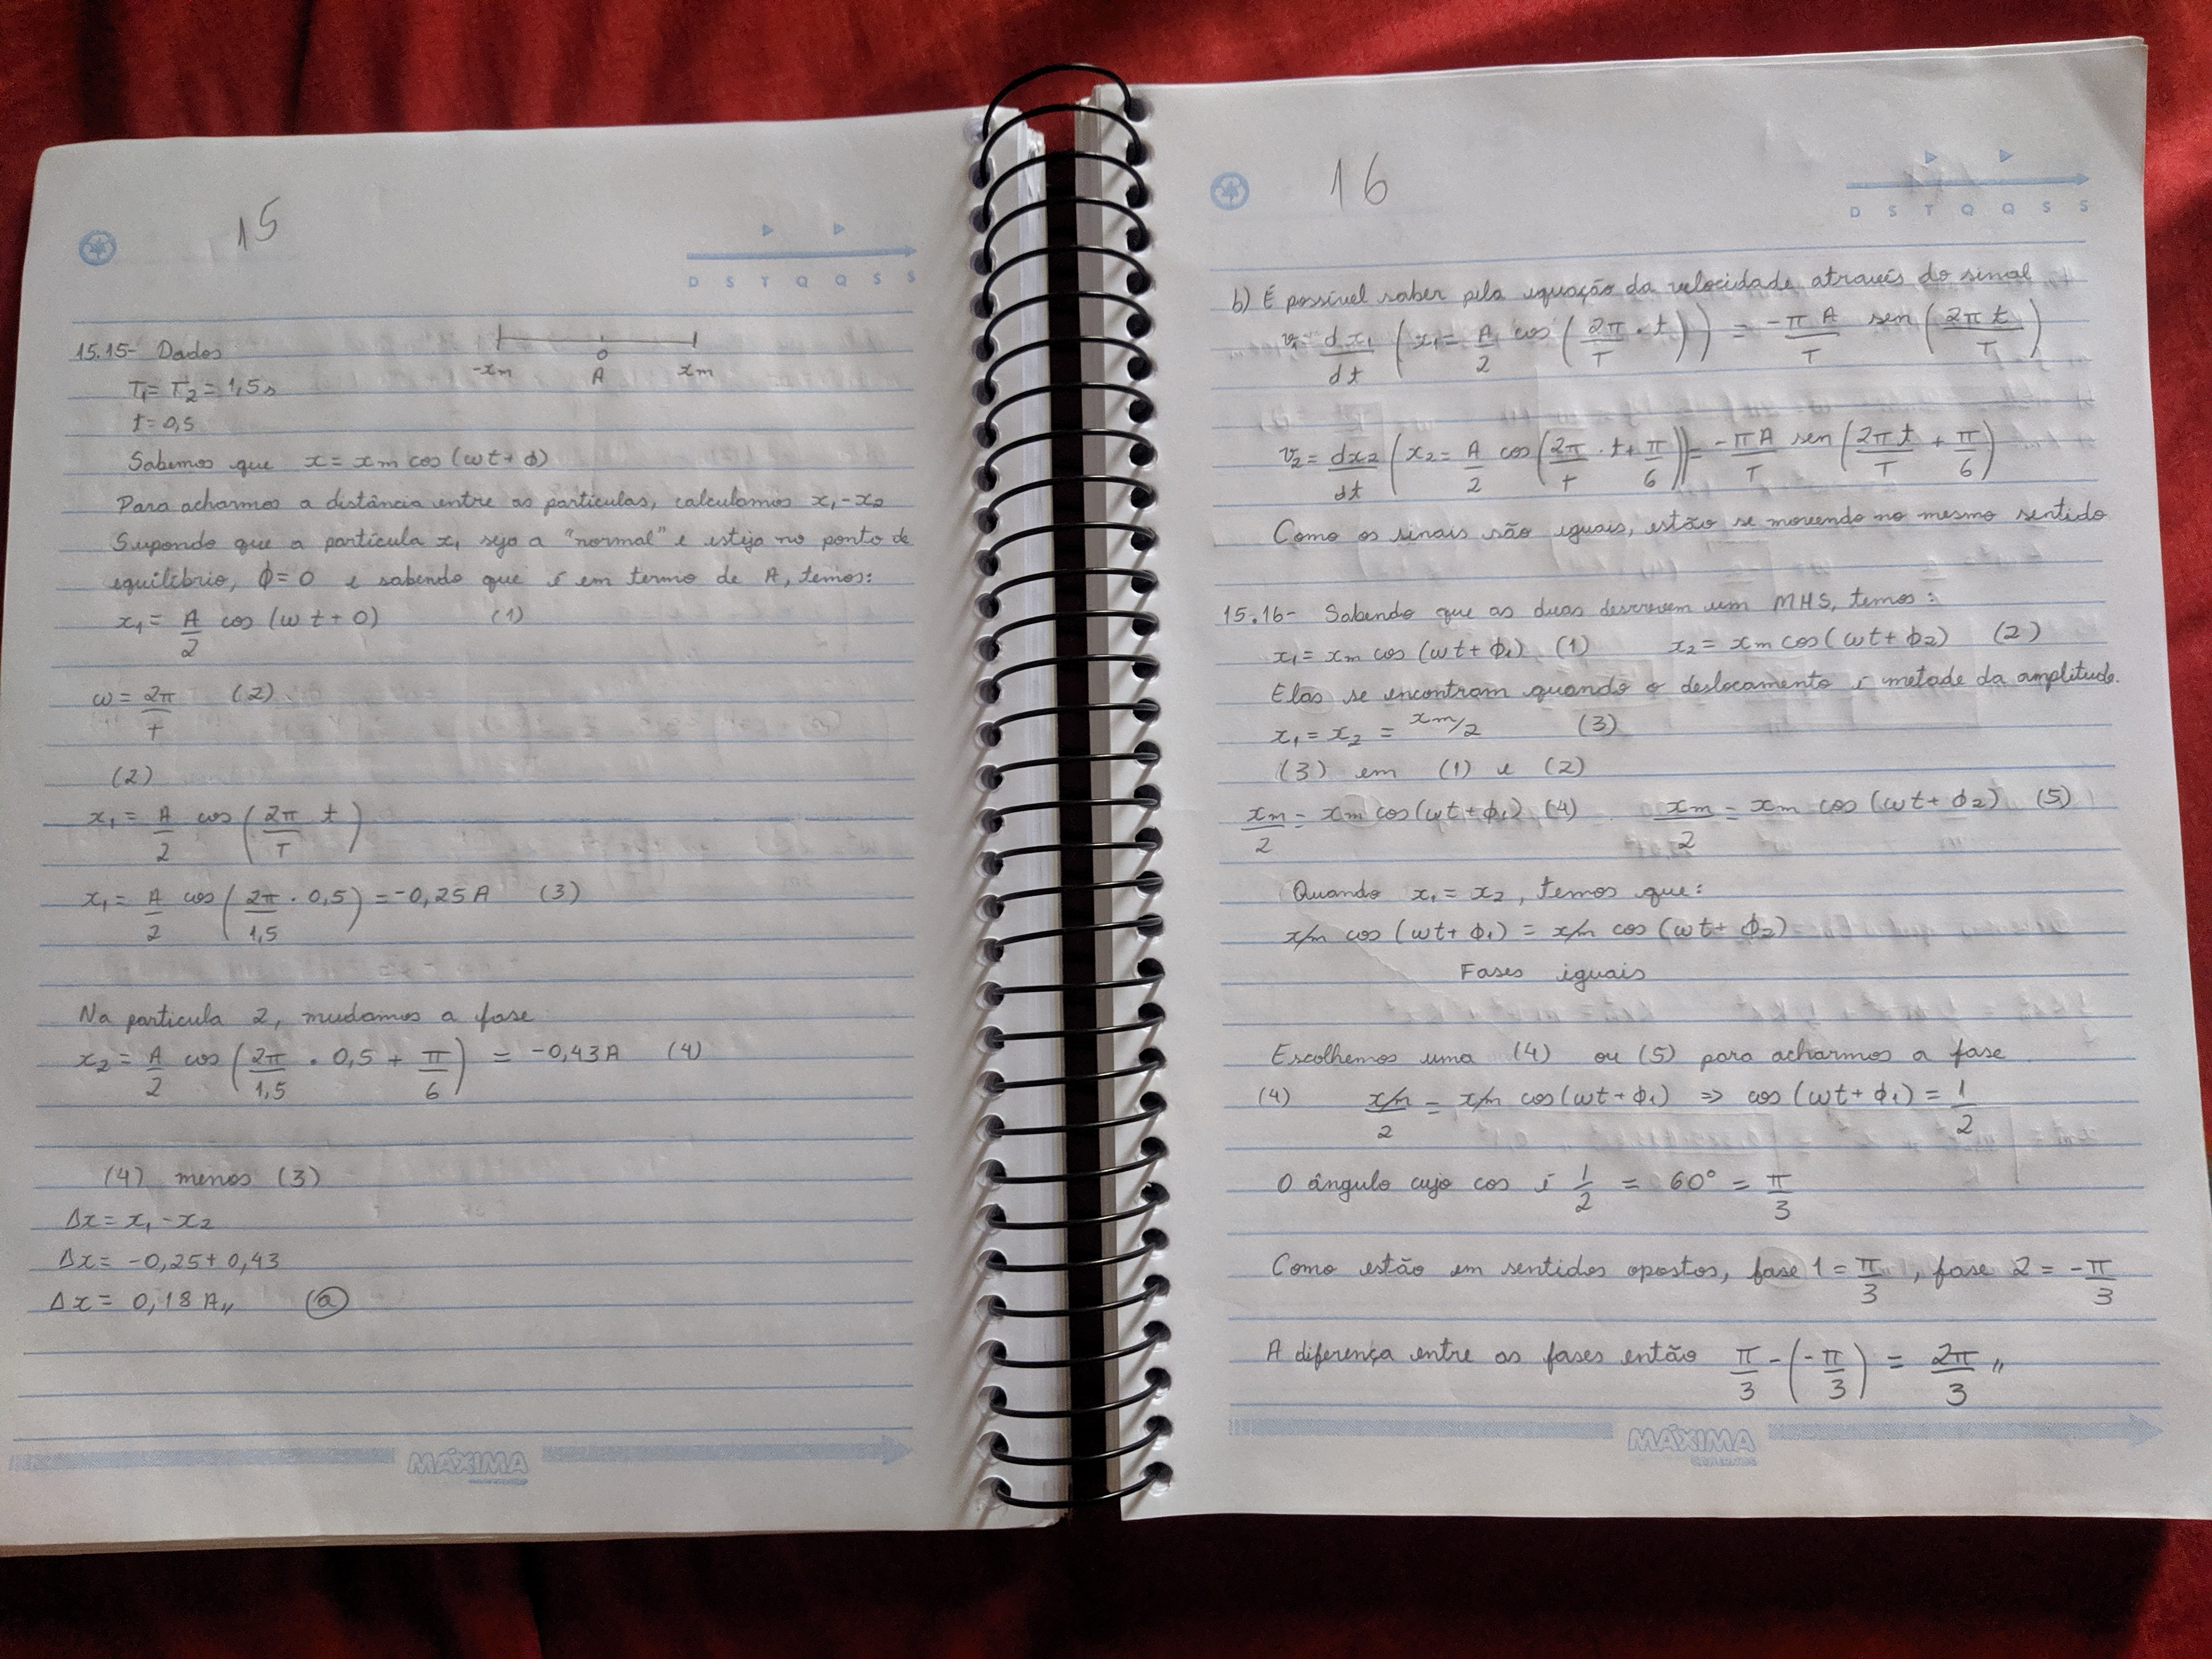 15
D S T Q Q S S
15.15- Dados
-xm 0 A xm
T₁ = T₂ = 1,5 s
t = 0,5
Sabemos que x = xm cos (ωt + ϕ)
Para acharmos a distância entre as partículas, calculamos x₁ - x₂
Supondo que a partícula x₁ seja a "normal" e esteja no ponto de
equilíbrio, ϕ = 0 e sabendo que é em termo de A, temos:
x₁ = A/2 cos (ωt + 0) (1)
ω = 2π/T (2)
(2)
x₁ = A/2 cos (2π/T t)
x₁ = A/2 cos (2π/1,5 . 0,5) = -0,25A (3)
Na partícula 2, mudamos a fase
x₂ = A/2 cos (2π/1,5 . 0,5 + π/6) = -0,43A (4)
(4) menos (3)
Δx = x₁ - x₂
Δx = -0,25 + 0,43
Δx = 0,18 A,, (a)
MÁXIMA
16
D S T Q Q S S
b) É possível saber pela equação da velocidade através do sinal
v₁ = dx₁/dt (x₁ = A/2 cos (2π/T . t)) = -πA/T sen (2πt/T)
v₂ = dx₂/dt (x₂ = A/2 cos (2π/T . t + π/6)) = -πA/T sen (2πt/T + π/6)
Como os sinais são iguais, estão se movendo no mesmo sentido
15.16- Sabendo que as duas descrevem um MHS, temos:
x₁ = xm cos (ωt + ϕ₁) (1) x₂ = xm cos (ωt + ϕ₂) (2)
Elas se encontram quando o deslocamento é metade da amplitude.
x₁ = x₂ = xm/2 (3)
(3) em (1) e (2)
xm/2 = xm cos (ωt + ϕ₁) (4) xm/2 = xm cos (ωt + ϕ₂) (5)
Quando x₁ = x₂, temos que:
xm cos (ωt + ϕ₁) = xm cos (ωt + ϕ₂)
Fases iguais
Escolhemos uma (4) ou (5) para acharmos a fase
(4) xm/2 = xm cos (ωt + ϕ₁) => cos (ωt + ϕ₁) = 1/2
O ângulo cujo cos é 1/2 = 60° = π/3
Como estão em sentidos opostos, fase 1 = π/3, fase 2 = -π/3
A diferença entre as fases então π/3 - (-π/3) = 2π/3 ,,
MÁXIMA